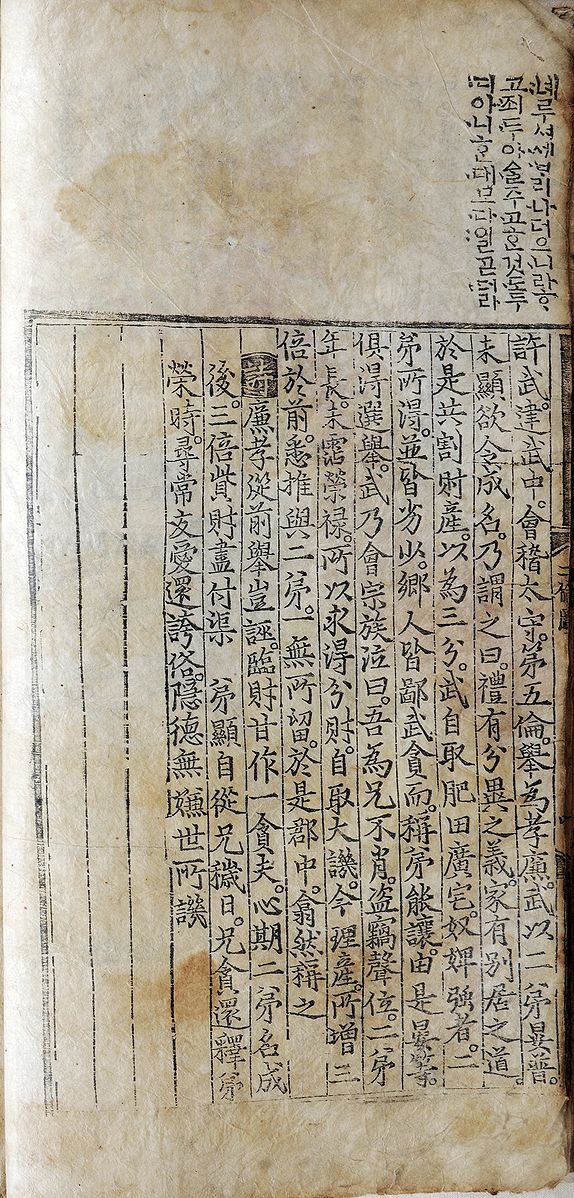 녜루셔세ᄇᆞ리나더으니랑
고죄두아ᅀᆞᆯ주고ᄒᆞᆫ것도두
디아니ᄒᆞᆫ대모다일ᄏᆞᆮ더라
許武。建武中。會稽太守。第五倫。擧為孝廉。武以二弟晏普。
未顯欲令成名。乃謂之曰。禮有分異之義。家有別居之道
於是共割財產。以為三分。武自取肥田廣宅。奴婢強者。二
弟所得。並皆劣少。鄕人皆鄙武貪而。稱弟能讓。由是晏等。
俱得選擧。武乃會宗族泣曰。吾為兄不肖。盜竊聲位。二弟
年長。未霑榮祿。所以求得分財。自取大譏。今理產。所增三
倍於前。悉推與二弟。一無所留。於是郡中。翕然稱之
詩 廉孝從前擧豈誣。臨財甘作一貪夫。心期二弟名成
後。三倍貲財盡付渠 弟顯自從兄穢日。兄貪還釋弟
榮時。尋常友愛還誇俗。隱德無嫌世所譏